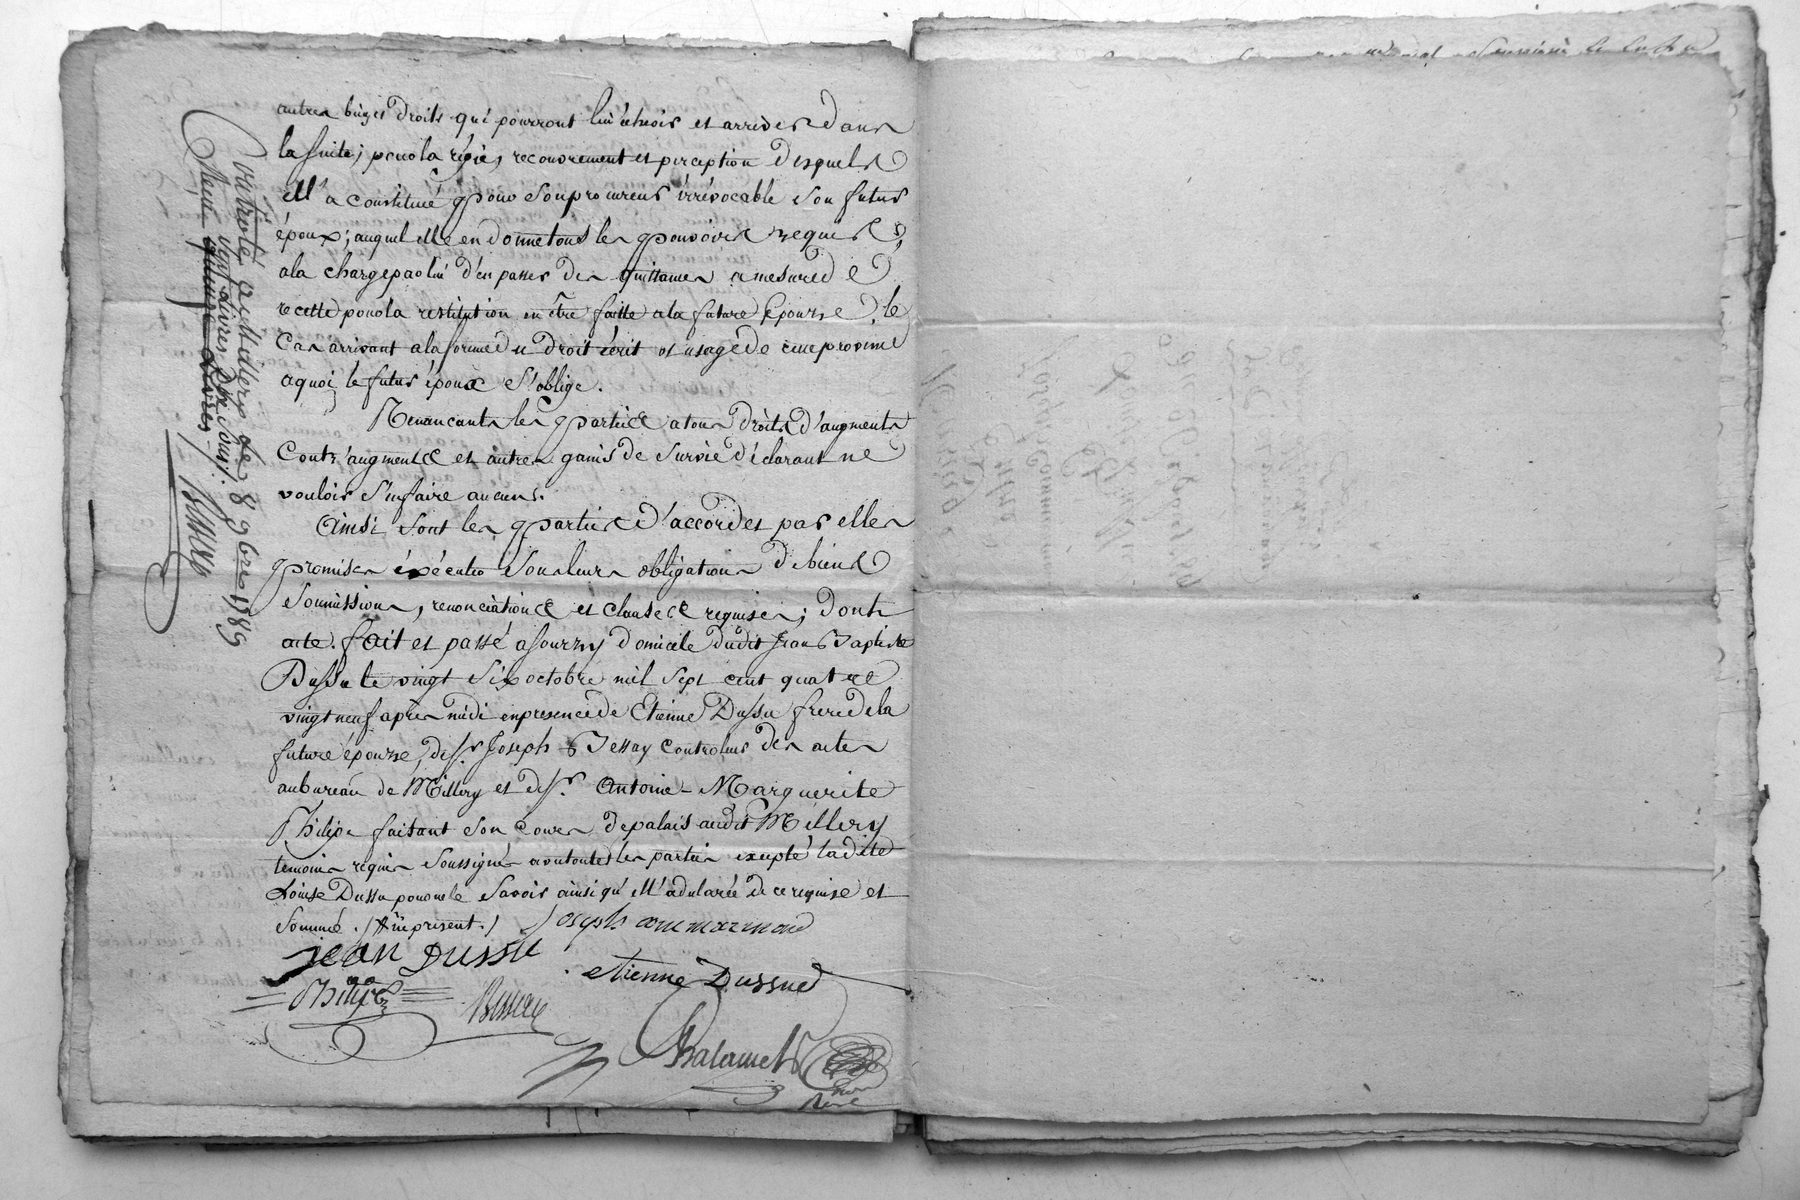 autres biens et droits qui pourront lui échoir et arriver dans
la suite; pour la régie, recouvrement et perception desquels
ell' a constitué pour son procureur irrévocable son futur
époux; auquel elle en donne tous les pouvoirs requis,
a la charge par lui d'en passer des quittances a mesure de
recette pour la restitution en être faitte a la future épouse, le
cas arrivant a la forme du droit écrit et usage de cette province
a quoi le futur époux s'oblige.
Renoncants les parties a tous droits d'augments
contr'augments et autres gains de survie déclarant ne
vouloir s'en faire aucuns.
Ainsi sont les parties d'accord et par elles
promis exécuter sous leurs obligations de biens
soumissions, renonciations et clauses requises; dont
acte. fait et passé a Sourzy domicile dudit Jean Baptiste
Dussu le vingt six octobre mil sept cent quatre
vingt neuf après midi en presence de Etienne Dussu frere de la
future épouse, de Sr. Joseph Bessay controleur des actes
au bureau de Millery et de Sr. Antoine-Marguerite
Philipe faisant son cours de palais audit Millery
temoins requis soussignés avec toutes les parties excepté ladite
Louise Dussu pour ne le savoir ainsi qu'ell' a declaré de ce requise et
sommé.
jean Dussu
etienne Dussud
Philipe
Bessay
Chalamel
Controlé a Millery le 8 9bre 1789